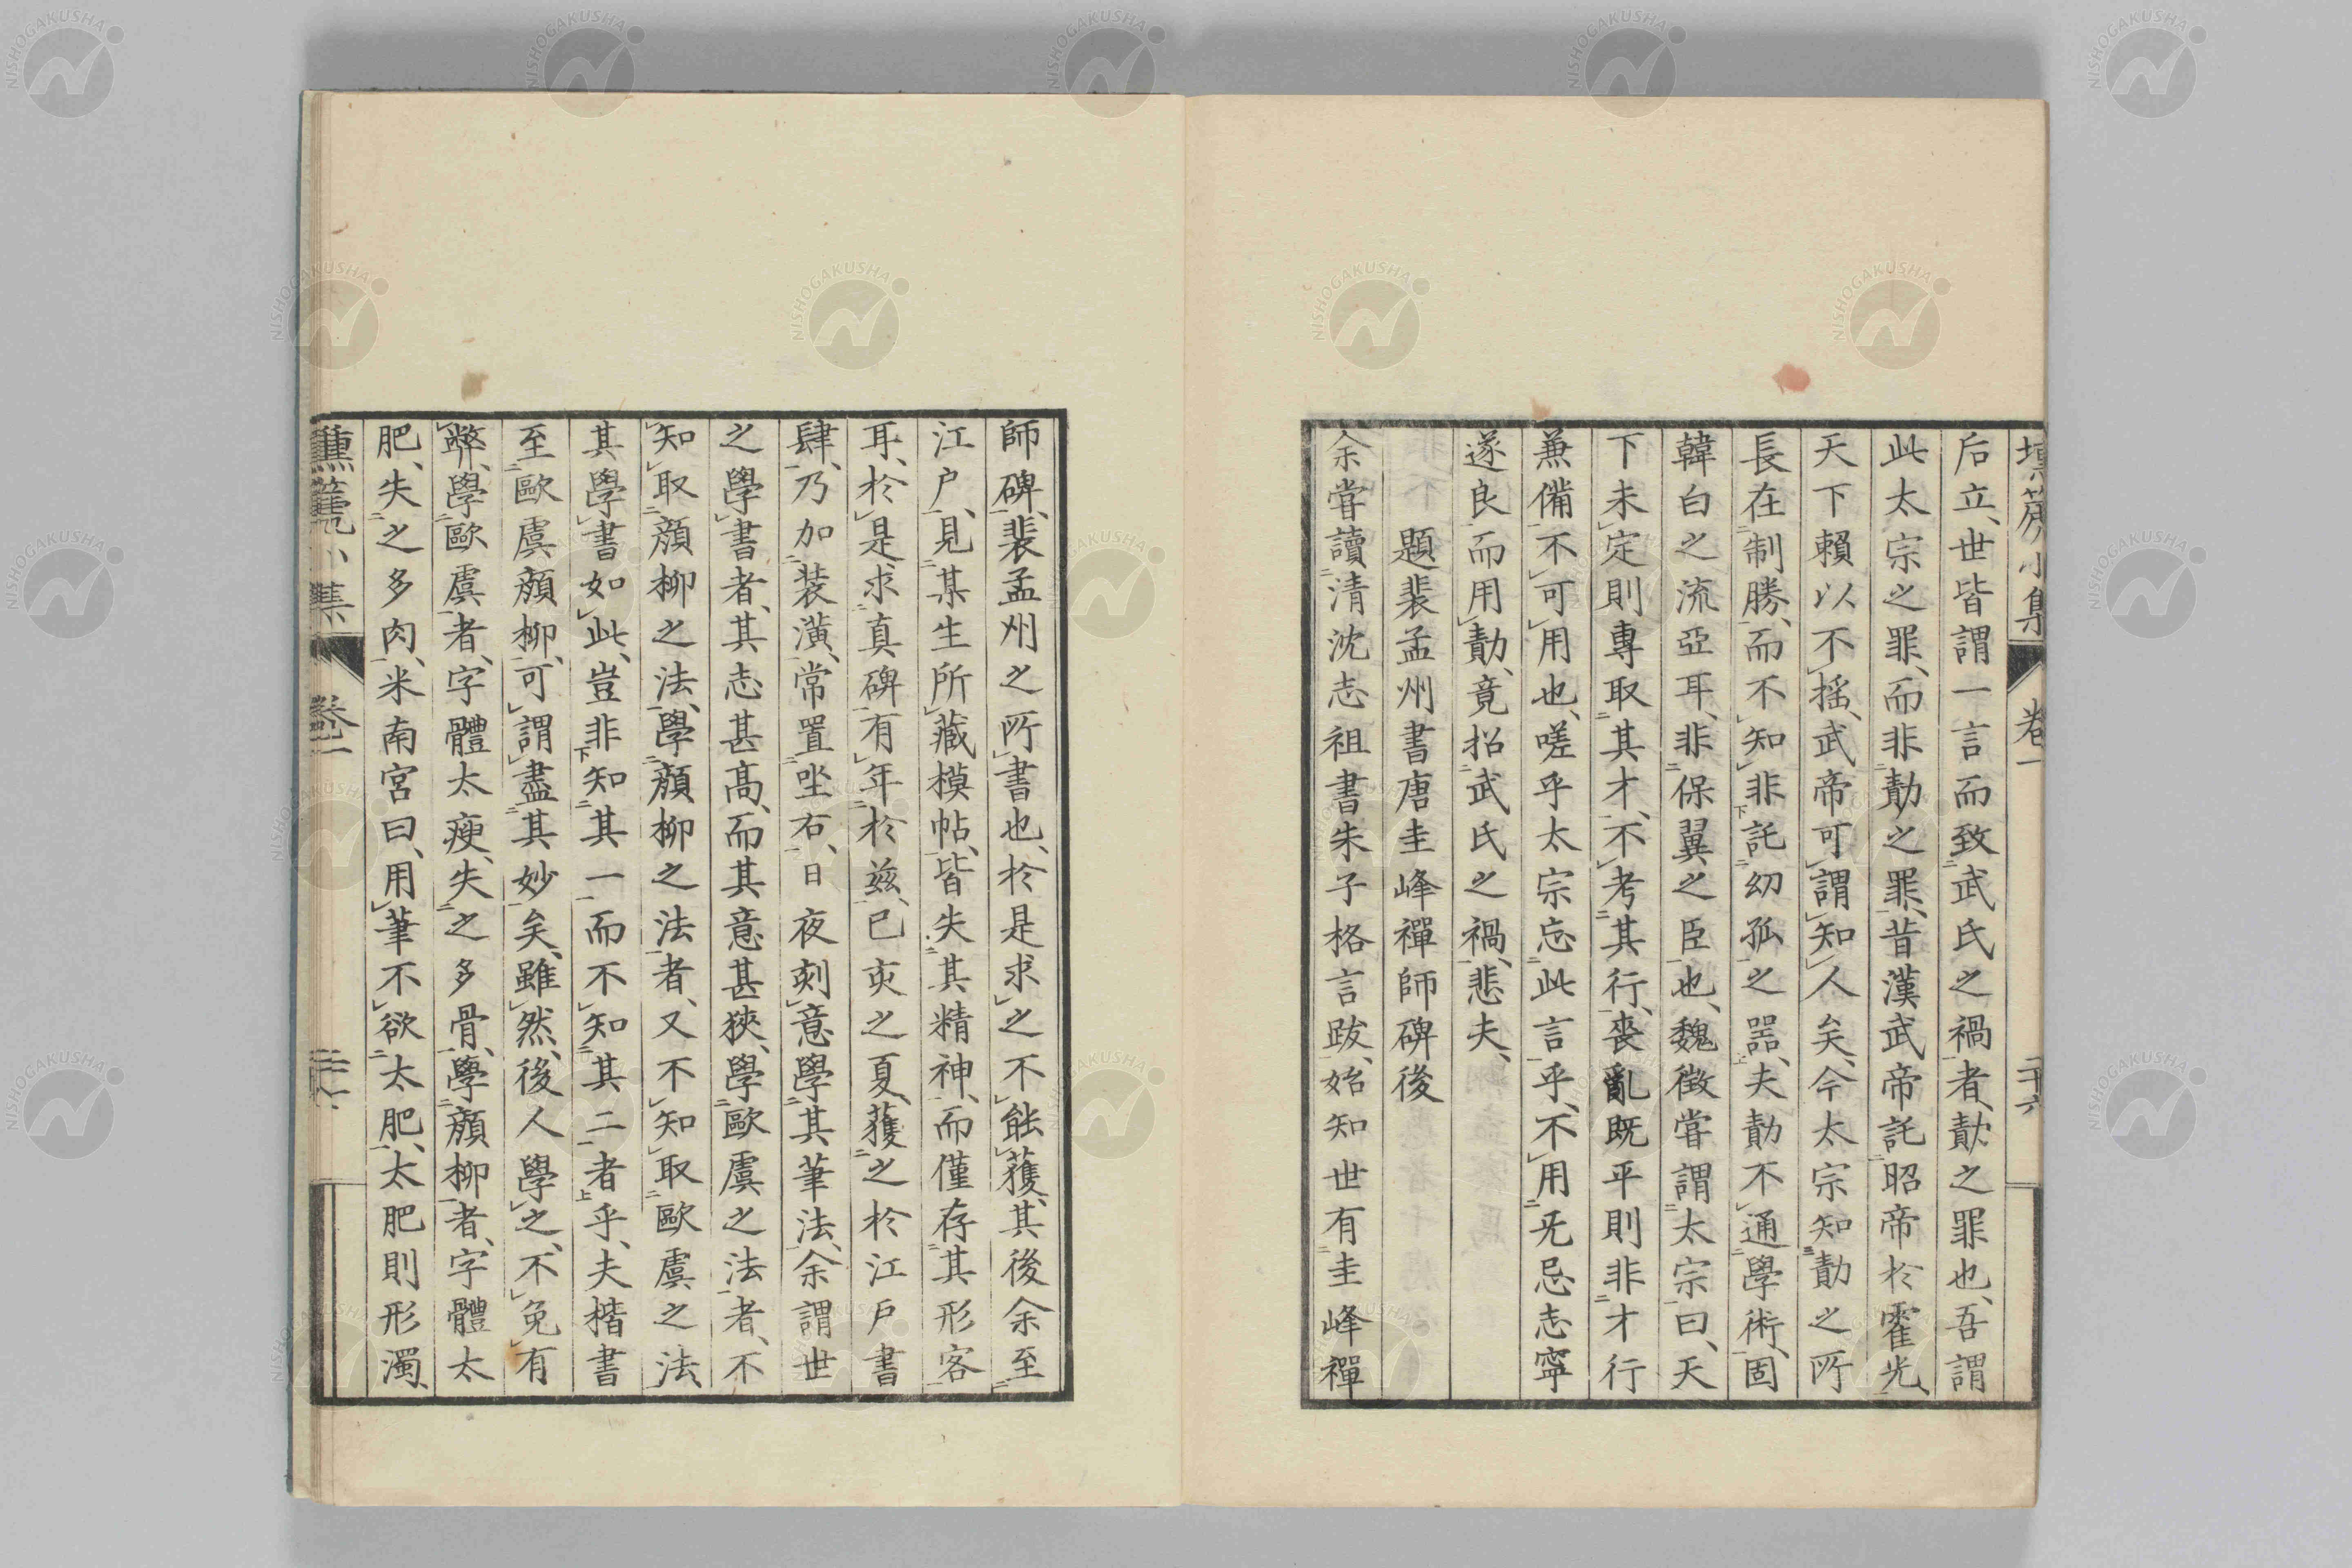 壎篪小集 卷一 二十六
后立、世皆謂一言而致武氏之禍者、勣之罪也、吾謂
此太宗之罪、而非勣之罪、昔漢武帝託昭帝於霍光、
天下賴以不搖、武帝可謂知人矣、今太宗知勣之所
長在制勝、而不知非託幼孤之器、夫勣不通學術、固
韓白之流亞耳、非保翼之臣也、魏徵嘗謂太宗曰、天
下未定則專取其才、不考其行、喪亂既平則非才行
兼備不可用也、嗟乎太宗忘此言乎、不用无忌志寧
遂良而用勣、竟招武氏之禍、悲夫、
題裴孟州書唐圭峰禪師碑後
余嘗讀清沈志祖書朱子格言跋、始知世有圭峰禪
師碑、裴孟州之所書也、於是求之不能獲、其後余至
江戶、見某生所藏模帖、皆失其精神、而僅存其形容
耳、於是求真碑有年於茲、已亥之夏、獲之於江戶書
肆、乃加装潢、常置坐右、日夜刻意學其筆法、余謂世
之學書者、其志甚高、而其意甚狹、學歐虞之法者、不
知取顏柳之法、學顏柳之法者、又不知取歐虞之法、
其學書如此、豈非知其一而不知其二者乎、夫楷書
至歐虞顏柳、可謂盡其妙矣、雖然、後人學之、不免有
弊、學歐虞者、字體太瘦、失之多骨、學顏柳者、字體太
肥、失之多肉、米南宮曰、用筆不欲太肥、太肥則形濁、